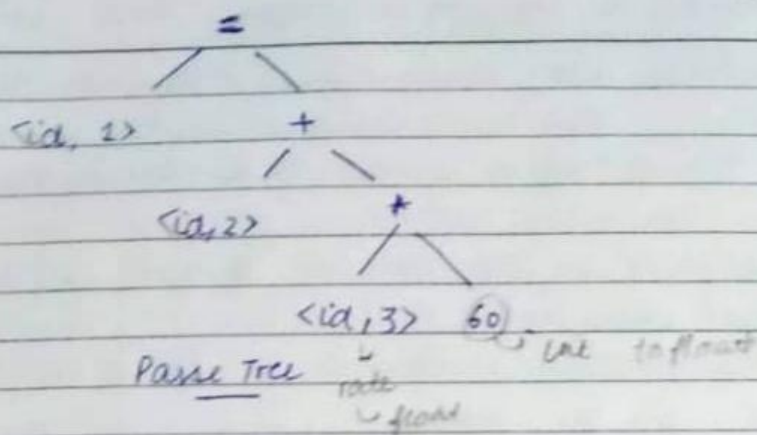 =
<id, 1> +
<id,2> *
<id,3> 60 int to float
Parse Tree rate
float